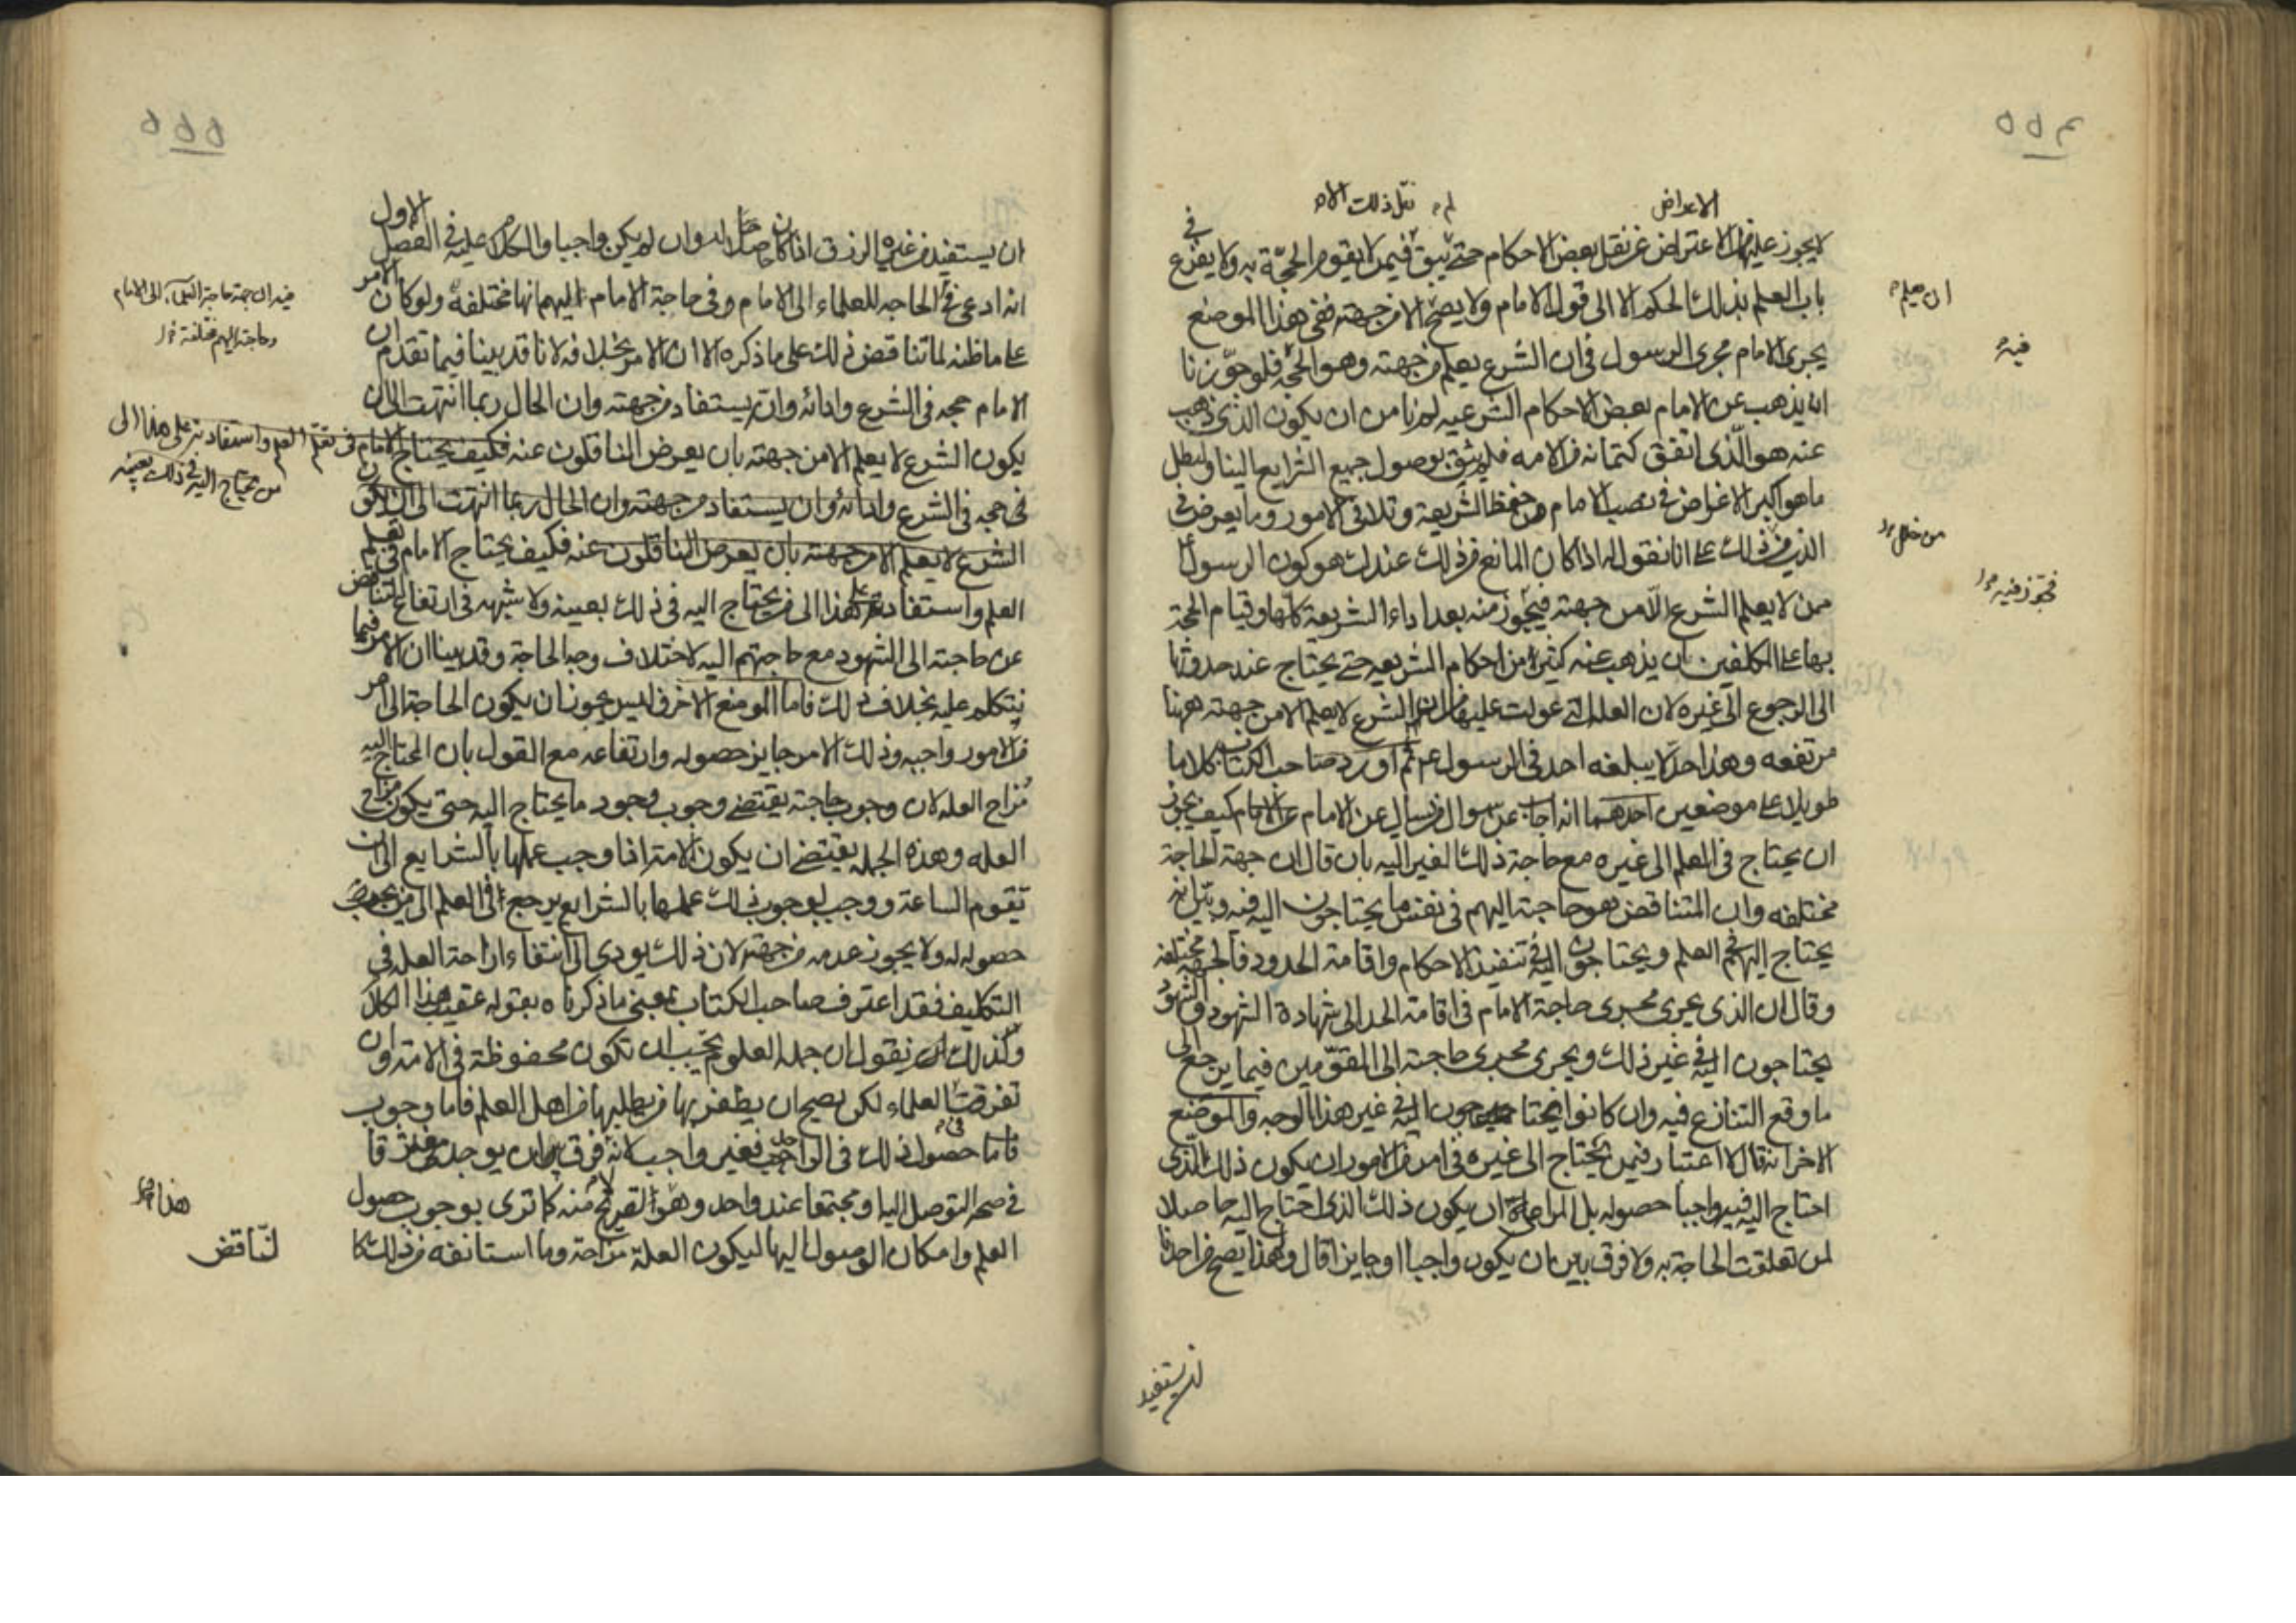 ٥٥٤
الاعراض
لم نقل ذلك الام
لا يجوز عليهم الاعتراض عن نقل بعض الاحكام حتى يبق فيمن لا يقوم الحجة به ولا يفزع في
باب العلم بذلك الحكم الا الى قول الامام ولا يصح الا من جهته ففي هذا الموضع
يجرى الامام مجرى الرسول في ان الشرع يعلم من جهته وهو الحجة فلو جوزنا
ان يذهب عن الامام بعض الاحكام الشرعيه لم نامن ان يكون الذي ذهب
عنه هو الذي اتفق كتمانه من الامه فلم يثق بوصول جميع الشرايع الينا ولبطل
ما هو اكبر الاغراض في نصب الامام من حفظ الشريعة وتلافى الامور وما يعرض في
الدين من ذلك على انا نقول له اذا كان المانع من ذلك عندك هو كون الرسول
ممن لا يعلم الشرع الا من جهته فيجوز منه بعد اداء الشريعة كلها وقيام الحجة
بها على المكلفين بان يذهب عنه كثير من احكام الشريعه حتى يحتاج عند حدوثها
الى الرجوع الى غيره لان العلة التي عولت عليها من ان الشرع لا يعلم الا من جهته ههنا
مرتفعه وهذا حد لا يبلغه احد في الرسول ثم اورد صاحب الكتاب كلاما
طويلا على موضعين احدهما انه اجاب عن سوال من سال عن الامام كيف يجوز
ان يحتاج في العلم الى غيره مع حاجة ذلك الغير اليه بان قال ان جهة الحاجة
مختلفه وان المتناقض هو حاجته اليهم في نفس ما يحتاجون اليه فيه وبين انه
يحتاج اليهم في العلم ويحتاجون اليه في تنفيذ الاحكام واقامة الحدود فالجهة مختلفه
وقال ان الذي يجرى مجرى حاجة الامام في اقامة الحد الى شهادة الشهود والشهود
يحتاجون اليه في غير ذلك ويجرى مجرى حاجته الى المقومين فيما يرجع الى
ما وقع التنازع فيه وان كانوا يحتاجون اليه في غير هذا الوجه والموضع
الاخر انه قال لا اعتبار فيمن يحتاج الى غيره في امر من الامور ان يكون ذلك الذي
احتاج اليه فيه واجبا حصوله بل المراعاة ان يكون ذلك الذي احتاج اليه حاصلا
لمن تعلقت الحاجة به ولا فرق بين ان يكون واجبا او جايزا قال ولهذا يصح من احدنا
ان يستفيد
ان يعلم
فيه
من خلل
فيجوز فيه
٥٥٥
ان يستفيد من غيره الرزق اذا كان حاصلا له وان لم يكن واجبا والكلام عليه في الفصل الاول
انه ادعى في الحاجه للعلماء الى الامام وفي حاجة الامام اليهم انها مختلفه ولو كان الامر
على ما ظنه لما تناقض ذلك على ما ذكره الا ان الامر بخلافه لانا قد بينا فيما تقدم ان
الامام حجه في الشرع وادائه وانه يستفاد من جهته وان الحال ربما انتهت الى ان
يكون الشرع لا يعلم الا من جهته بان يعرض الناقلون عنه فكيف يحتاج الامام في تعلم العلم واستفادته على هذا الى
من يحتاج اليه في ذلك بعينه
في حجه في الشرع وادائه وان يستفاد من جهته وان الحال ربما انتهت الى ان يكون
الشرع لا يعلم الا من جهته بان يعرض الناقلون عنه فكيف يحتاج الامام في تعلم
العلم واستفادته على هذا الى من يحتاج اليه في ذلك بعينه ولا شبهه في ارتفاع التناقض
عن حاجته الى الشهود مع حاجتهم اليه لاختلاف وجه الحاجة وقد بينا ان الامر فيما
نتكلم عليه بخلاف ذلك فاما الموضع الاخر فليس يجوز ان يكون الحاجة الى امر
من الامور واجبه وذلك الامر جايز حصوله وارتفاعه مع القول بان المحتاج اليه
مزاح العله لان وجوب حاجته يقتضى وجوب وجود ما يحتاج اليه حتى يكون مزاح
العله وهذه الجمله يقتضى ان يكون الامة اذا وجب عملها بالشرايع الى ان
تقوم الساعة ووجب لوجوب ذلك علمها بالشرايع يرجع في العلم الى من يجب
حصوله له ولا يجوز عدمه من جهته لان ذلك يودي الى انتفاء ازاحة العله في
التكليف فقد اعترف صاحب الكتاب بمعنى ما ذكرناه بقوله عقيب هذا الكلام
وكذلك نقول ان جمله العلوم يجب ان تكون محفوظة في الامة وان
تفرقت العلماء لكن يصح ان يظفر بها من يطلبها من اهل العلم فاما وجوب
فاما حصول ذلك في الواحد فغير واجب لانه لا فرق بين ان يوجد متفرقا
في صحة التوصل اليها ومجتمعا عند واحد وهو تصريح منه كما ترى بوجوب حصول
العلم وامكان الوصول اليها ليكون العلة مزاحة وما استانفه من ذلك كا
فيه ان جهة حاجة العلماء الى الامام
وحاجته اليهم مختلفة
هذا
لتناقض